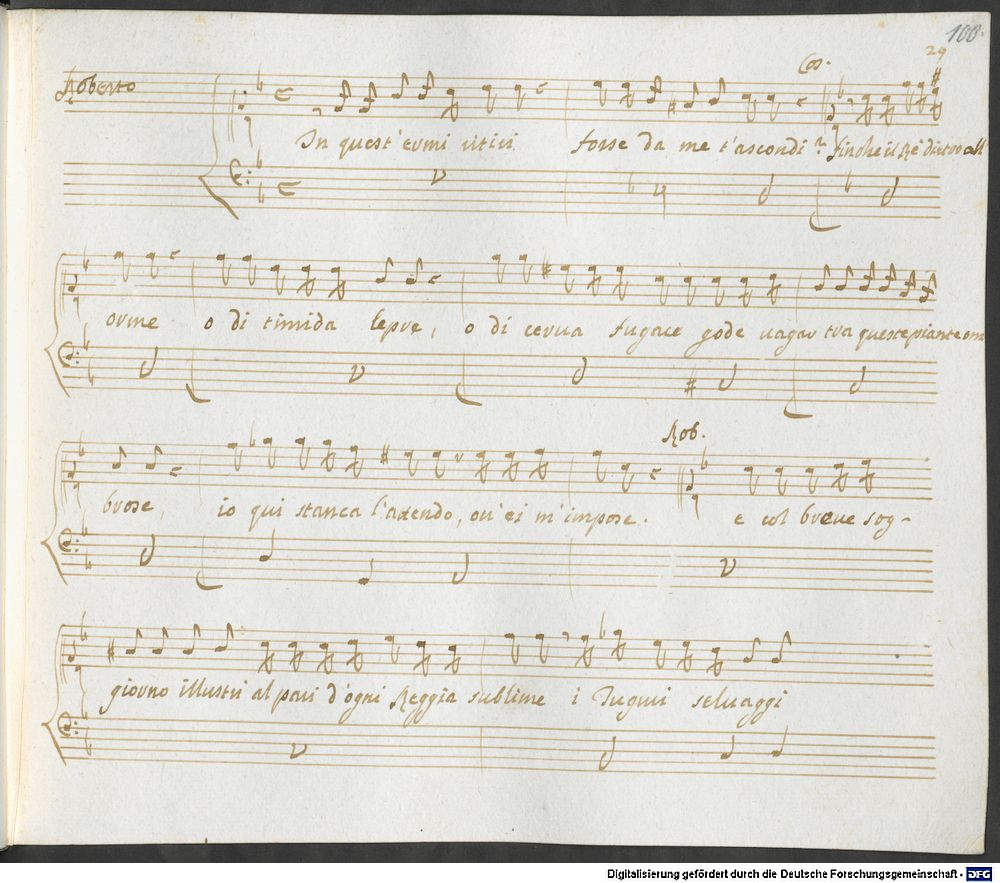 100.
29
Roberto
Cos.
In quest'ermi ritiri forse da me t'ascondi? finche il Rè dietro all'
orme o di timida lepre, o di cerva fugace gode vagar tra queste piante om
brose, io qui stanca l'attendo, ov'ei m'impose.
Rob.
e col breve sog-
giorno illustri al pari d'ogni Reggia sublime i Tuguri selvaggi
Digitalisierung gefördert durch die Deutsche Forschungsgemeinschaft - DFG